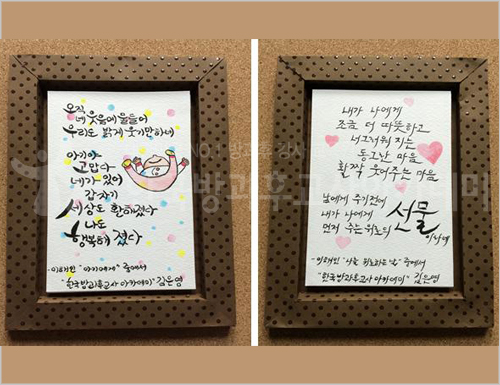 오직
네 웃음에 물들어
우리도 밝게 웃기만하여
아기야
고맙다
네가 있어
갑자기
세상도 환해졌다
나도
행복해 졌다
-이해인 "아기에게" 중에서
"한국방과후교사 아카데미" 김은영
내가 나에게
조금 더 따뜻하고
너그러워 지는
동그란 마음
활짝 웃어주는 마음
남에게 주기전에
내가 나에게
먼저 주는 위로의
선물
이라네
-이해인 중에서
"한국방과후교사 아카데미" 김은영
NO.1 방과후 강사